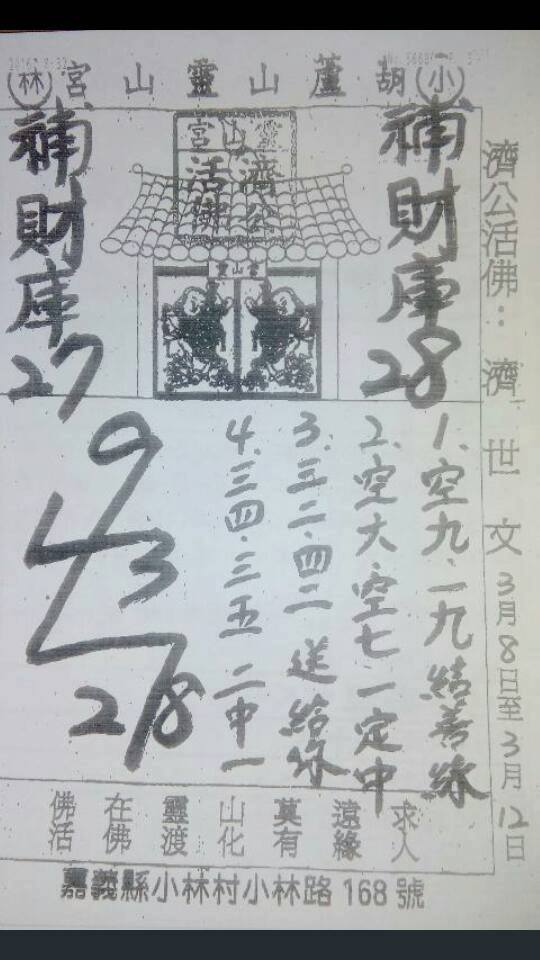 小胡蘆山靈山宮林
濟公活佛：濟世文3月8日至3月12日
補財庫28
靈山宮
濟公
活佛
補財庫27
1、空九．一九結善緣
2、空大．空七．一定中
3、三二．四二送給你
4、三四．三五二中一
9
43
28
求人
遠緣
莫有
山化
靈渡
在佛
佛活
嘉義縣小林村小林路168號